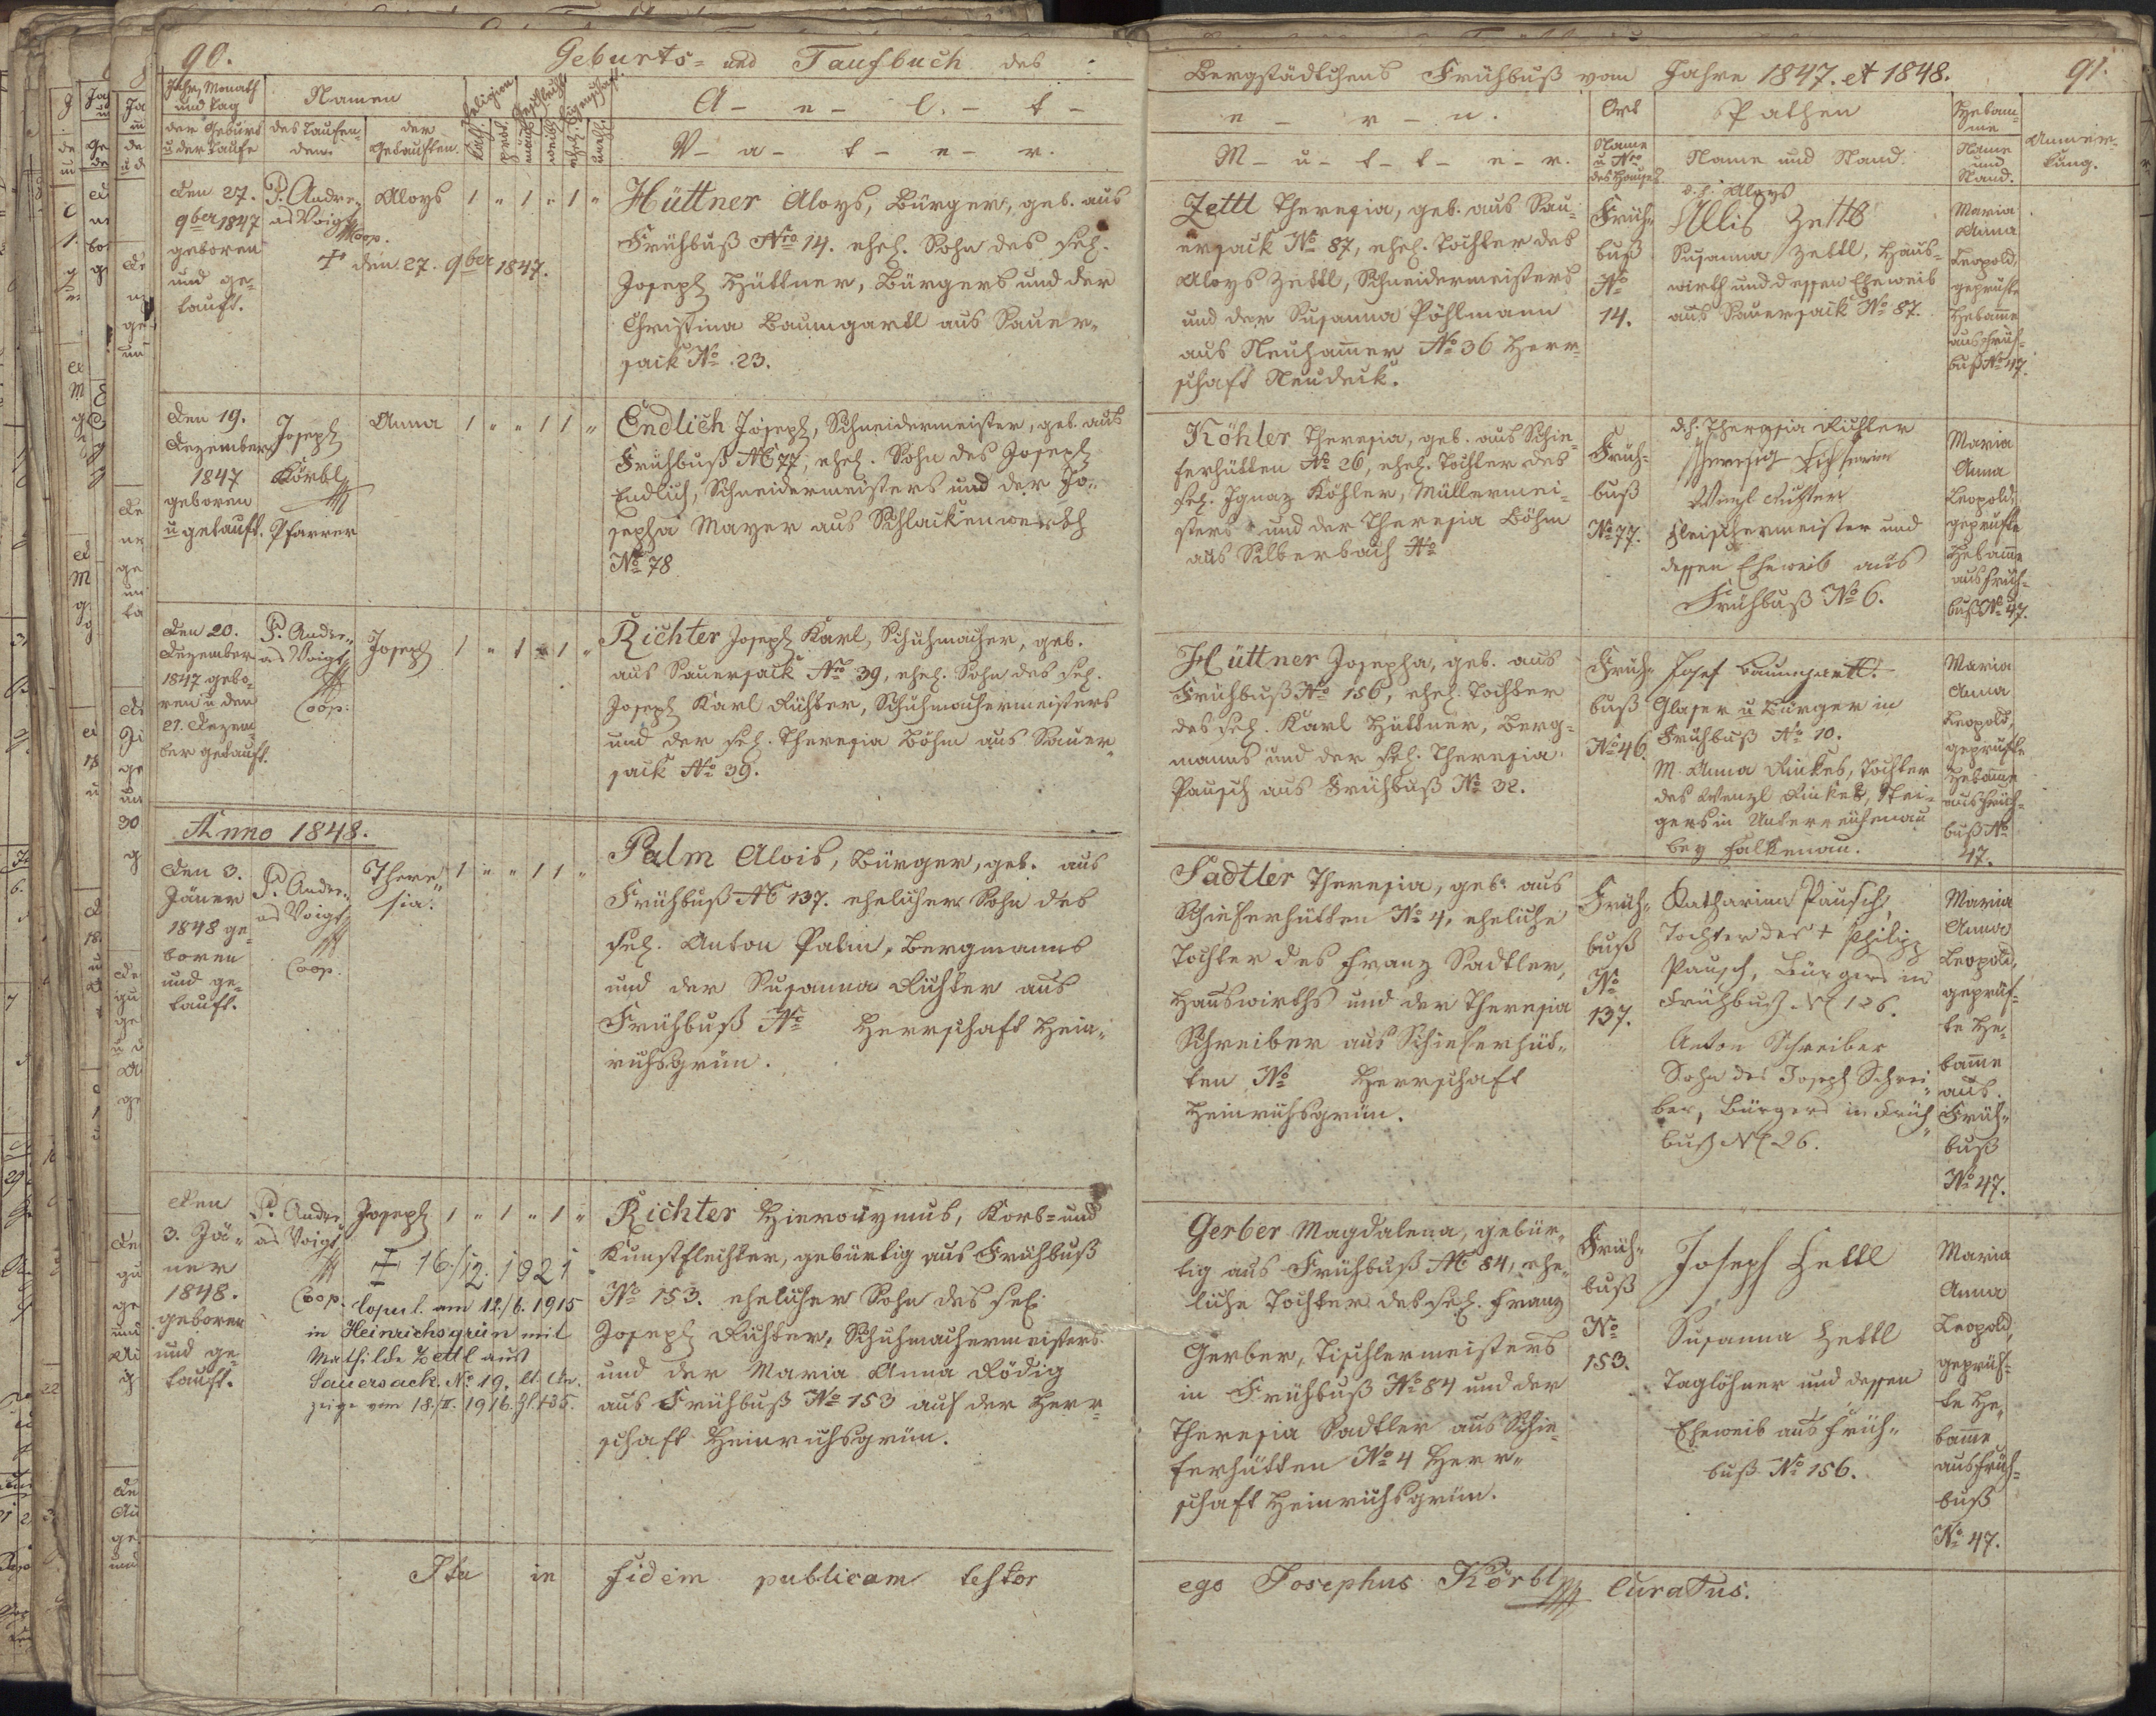 90.
Geburts- und Taufbuch des
Jahr, Monath
und Tag
Namen
Religion
Geschlecht
A - e - l - t -
der Geburt
u. der Taufe
des Taufen-
den.
der
Getauften.
kath.
prot.
männl.
weibl.
ehel.
unehl.
V - a - t - e - r.
Den 27.
9ber 1847
geboren
und ge-
tauft.
P. Andre-
as Voigt
Coop.
Aloys
1 " 1 " 1 "
† den 27. 9ber 1847.
Hüttner Aloys, Bürger, geb. aus
Frühbuß Nro 14. ehel. Sohn des sel.
Joseph Hüttner, Bürgers und der
Christina Baumgartl aus Sauer-
sack No 23.
Den 19.
Dezember
1847
geboren
u getauft.
Joseph
Körbl
Pfarrer
Anna
1 " " 1 1 "
Endlich Joseph, Schneidermeister, geb. aus
Frühbuß No 77, ehel. Sohn des Joseph
Endlich, Schneidermeisters und der Jo-
sepha Mayer aus Schlackenwerth
No 78
Den 20.
Dezember
1847 gebo-
ren u den
21. Dezem-
ber getauft.
P. Andre-
as Voigt
Coop.
Joseph
1 " 1 " 1 "
Richter Joseph Karl, Schuhmacher, geb.
aus Sauersack Nro 39, ehel. Sohn des sel.
Joseph Karl Richter, Schuhmachermeisters
und der sel. Theresia Böhm aus Sauer-
sack No 39.
Anno 1848.
Den 3.
Jäner
1848 ge-
boren
und ge-
tauft.
P. Andre-
as Voigt
Coop.
There-
sia.
1 " " 1 1 "
Palm Alois, Bürger, geb. aus
Frühbuß No 137. ehelicher Sohn des
sel. Anton Palm, Bergmanns
und der Susanna Richter aus
Frühbuß No Herrschaft Hein-
richsgrün.
Den
3. Jä-
ner
1848.
geboren
und ge-
tauft.
P. Andre-
as Voigt
Coop.
Joseph
1 " 1 " 1 "
† 16./12. 1921
Copul. am 12./6. 1915
in Heinrichsgrün mit
Mathilde Zettl aus
Sauersack No 19, lt. An-
zeige vom 18./II. 1916. Zl. 135.
Richter Hieronymus, Korb- und
Kunstflechter, gebürtig aus Frühbuß
No 153. ehelicher Sohn des sel.
Joseph Richter, Schuhmachermeisters
und der Maria Anna Rödig
aus Frühbuß No 153 auf der Herr-
schaft Heinrichsgrün.
Ita in fidem publicam testor
91.
Bergstädtchens Frühbuß vom Jahre 1847. et 1848.
e - r - n.
Ort
Pathen
Hebam-
me
Anmer-
kung.
M - u - t - t - e - r.
Name
u. Nro
des Hauses
Name und Stand.
Name
und
Stand.
Zettl Theresia, geb. aus Sau-
ersack No 87, ehel. Tochter des
Aloys Zettl, Schneidermeisters
und der Susanna Pöhlmann
aus Neuhamer No 36 Herr-
schaft Neudeck.
Früh-
buß
No
14.
d. h. Aloys
Allis Zettl
Susanna Zettl, Haus-
wirth und dessen Eheweib
aus Sauersack No 87.
Maria
Anna
Leopold,
geprüfte
Hebame
aus Früh-
buß No 47.
Köhler Theresia, geb. aus Schie-
ferhütten No 26, ehel. Tochter des
sel. Ignaz Köhler, Müllermei-
sters und der Theresia Böhm
aus Silberbach No
Früh-
buß
No 77.
d. h. Theresia Richter
Wenzl Richter
Fleischermeister und
dessen Eheweib aus
Frühbuß No 6.
Maria
Anna
Leopold,
geprüfte
Hebame
aus Früh-
buß No 47.
Hüttner Josepha, geb. aus
Frühbuß No 156, ehel. Tochter
des sel. Karl Hüttner, Berg-
manns und der sel. Theresia
Pausch aus Frühbuß No 32.
Früh-
buß
No 46.
Josef Baumgartl.
Glaser u Bürger in
Frühbuß No 10.
M. Anna Rinkes, Tochter
des Wenzl Rinkes, Stei-
gers in Unterreichenau
bey Falkenau.
Maria
Anna
Leopold,
geprüfte
Hebame
aus Früh-
buß No
47.
Sadtler Theresia, geb. aus
Schieferhütten No 4, eheliche
Tochter des Franz Sadtler,
Hauswirths und der Theresia
Schreiber aus Schieferhüt-
ten No Herrschaft
Heinrichsgrün.
Früh-
buß
No
137.
Katharina Pausch,
Tochter des † Philipp
Pausch, Bürgers in
Frühbuß No 126.
Anton Schreiber
Sohn des Joseph Schrei-
ber, Bürgers in Früh-
buß No 26.
Maria
Anna
Leopold,
geprüf-
te He-
bame
aus
Früh-
buß
No 47.
Gerber Magdalena, gebür-
tig aus Frühbuß No 84, ehe-
liche Tochter des sel. Franz
Gerber, Tischlermeisters
in Frühbuß No 84 und der
Theresia Sadtler aus Schie-
ferhütten No 4 Herr-
schaft Heinrichsgrün.
Früh-
buß
No
153.
Joseph Zettl
Susanna Zettl
Taglöhner und dessen
Eheweib aus Früh-
buß No 156.
Maria
Anna
Leopold,
geprüf-
te He-
bame
aus Früh-
buß
No 47.
ego Josephus Körbl Curatus.